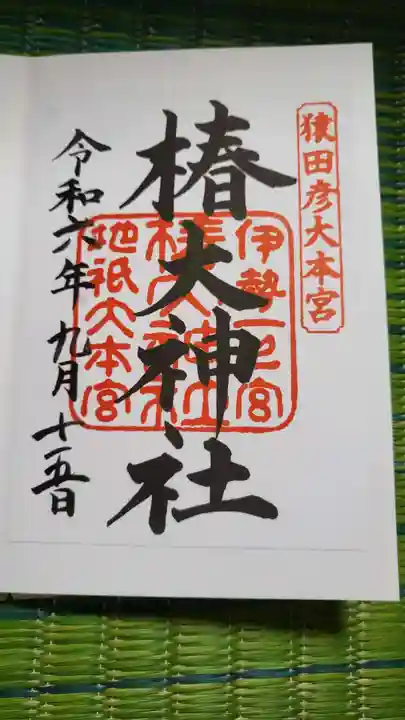 猿田彦大本宮
椿大神社
伊勢一之宮
椿大神社
地祇大本宮
令和六年九月十五日